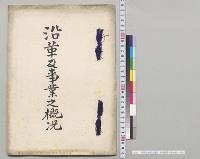 沿革及事業之概況